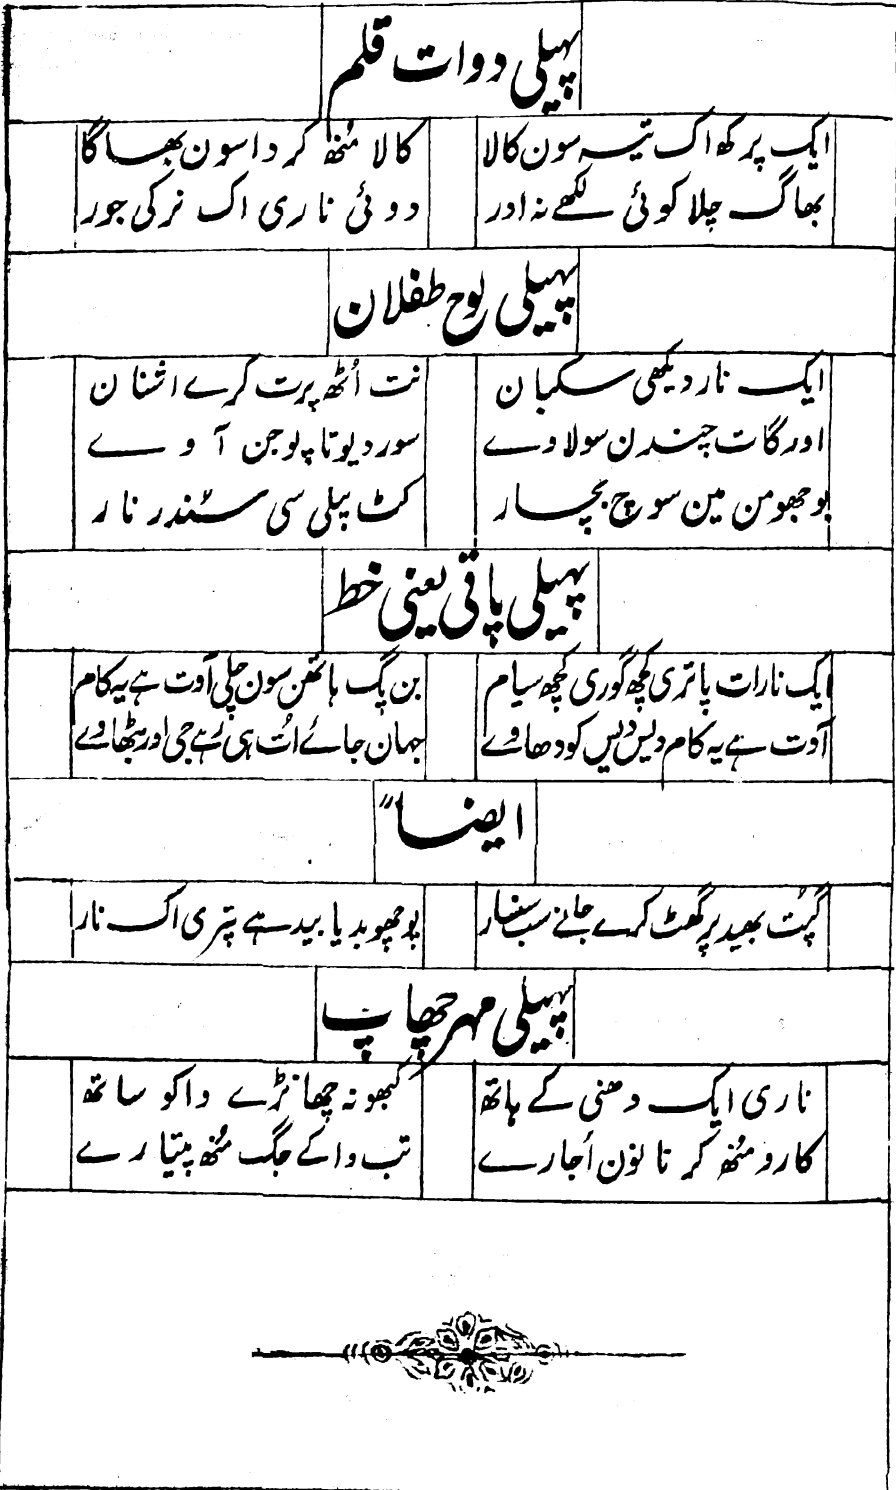 پہیلی دوات قلم
ایک پرکھ اک تیہ سون کالا
کالا منُھ کر داسون بھاگا
بھاگ چلا کوئی لکھے نہ اور
دوئی ناری اک نر کی جور
پہیلی لوح طفلان
ایک نار دیکھی سکہان
نت اُٹھ پرت کرے اشنان
اور گات چندن سولاوے
سور دیوتا پوجن آوے
بوجھو من مین سوچ بچار
کٹ پیلی سی سُندر نار
پہیلی پاتی یعنی خط
ایک نار ات پاتری کچھ گوری کچھ سیام
بن پگ ہاتھن سون چلی آوت ہے یہ کام
آوت ہے یہ کام دیس دیس کو دھاوے
جہان جائے اُت ہی رہے جی اور بٹھاوے
ایضاً
گپُت بھید پرگھٹ کرے جانے سب سنسار
بوجھو بدیا بید ہے پتری اک نار
پہیلی مہر چھاپ
ناری ایک دھنی کے ہاتھ
کبھو نہ چھانڑے واکو ساتھ
کارو منُھ کر نانون اُجارے
تب واکے جگ منُھ پتیارے